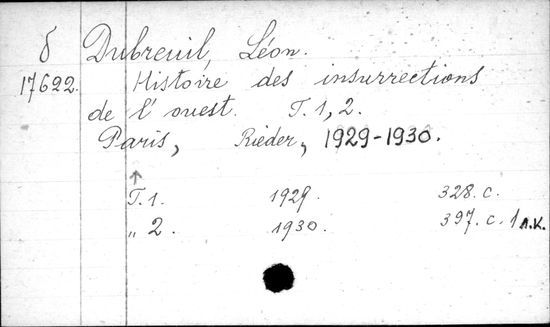 δ Dubreuil, Léon.
17622. Histoire des insurrections
de l'ouest. T. 1, 2.
Paris, Rieder, 1929-1930.
↑
T. 1. 1929. 328. c.
„ 2. 1930. 397. c. 1 А.К.